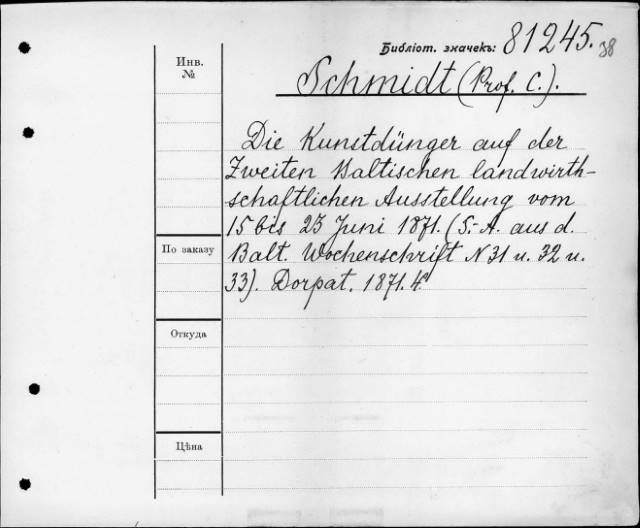 Библіот. значекъ: 81245. 38
Инв. №
Schmidt (Prof. C.).
Die Kunstdünger auf der
Zweiten Baltischen landwirth-
schaftlichen Ausstellung vom
15 bis 25 Juni 1871. (S.-A. aus d.
По заказу
Balt. Wochenschrift N 31 u. 32 u.
33). Dorpat. 1871. 4°
Откуда
Цѣна